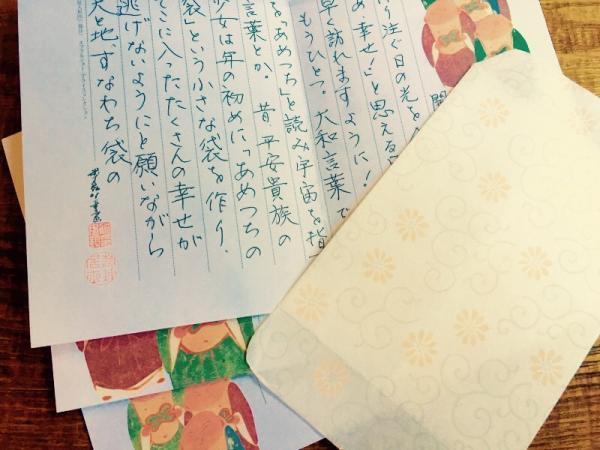 開
り注ぐ日の光を
め幸せ!」と思える
早く訪れますように!
もうひとつ。大和言葉で
「あめつち」と読み宇宙を指
言葉とか。昔 平安貴族の
少女は年の初めに「あめつちの
袋」という小さな袋を作り、
そこに入ったたくさんの幸せが
逃げないようにと願いながら
天と地、すなわち袋の